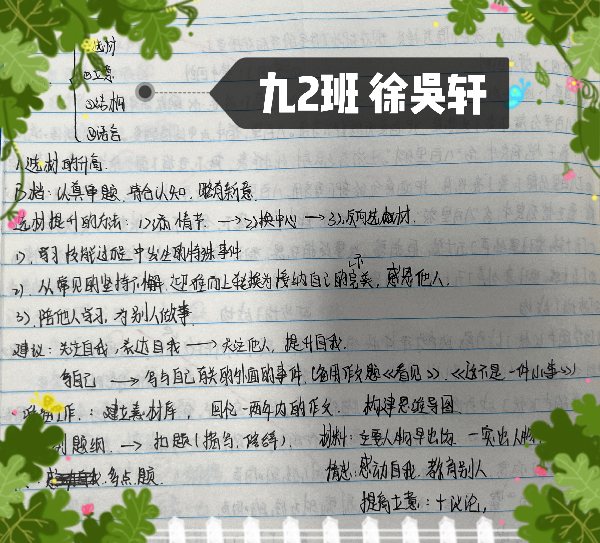 ①选材
②立意
③结构
④语言
九2班 徐吳轩
1.选材的升高
B档:认真审题,符合认知,略有新意.
选材提升的方法:1)添情节 →2)换中心 →3)反向选材.
1).学习技能过程中发生的特殊事件
2).从常见的坚持不懈,迎难而上转换为接纳自己的完美,感恩他人.
不
3).陪他人学习,为别人做事.
建议:关注自我,表达自我 → 关注他人,提升自我.
写自己 → 写与自己有关的外面的事件.(备用作文题《看见》.《这不是一件小事》)
工作.:建立素材库, 回忆一两年内的作文. 构建思维导图
列题纲. → 扣题(描写、 材料:主要人物早出场 一突出人物
多点题. 情感:感动自我.教育别人
提高立意:十议论,